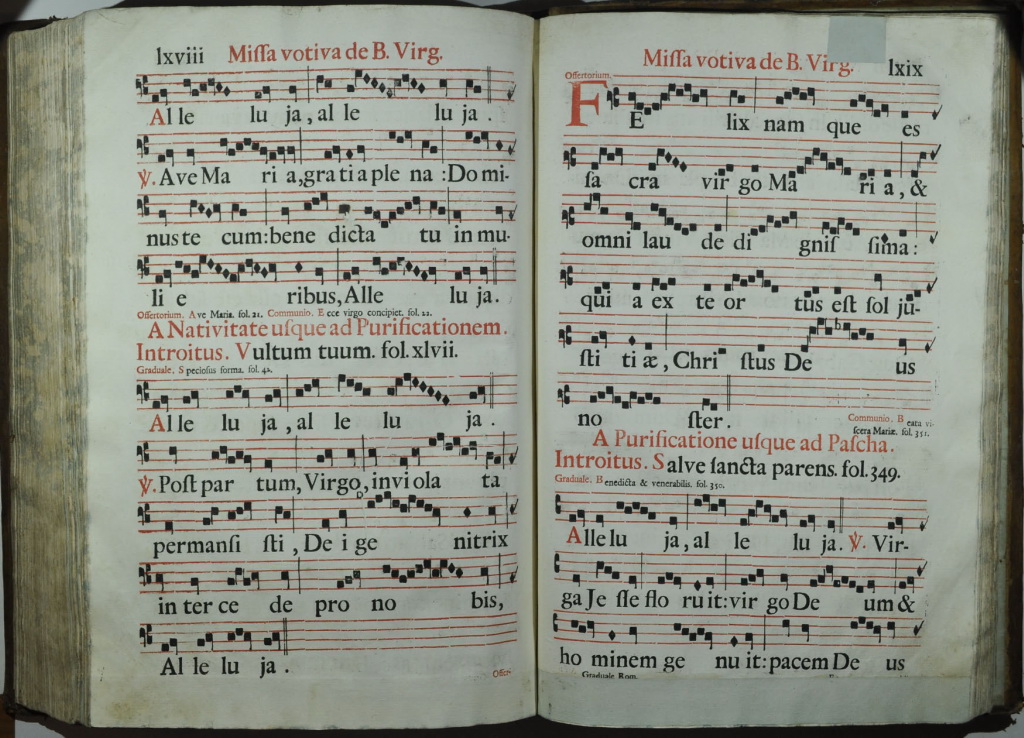 lxviii Miſſa votiva de B. Virg.
Al le lu ja, al le lu ja.
℣. Ave Ma ri a, gra ti a ple na : Do mi-
nus te cum: bene dicta tu in mu-
li e ribus, Alle lu ja.
Offertorium. Ave Maria. fol. 21. Communio. Ecce virgo concipiet. fol. 22.
A Nativitate uſque ad Purificationem.
Introitus. Vultum tuum. fol. xlvii.
Graduale. Specioſus forma. fol. 42.
Al le lu ja, al le lu ja.
℣. Poſt par tum, Virgo, invi ola ta
permanſi ſti, De i ge nitrix
in ter ce de pro no bis,
Al le lu ja.
Offer-
Miſſa votiva de B. Virg. lxix
Offertorium.
FE lix nam que es
ſa cra vir go Ma ri a, &
omni lau de di gniſ ſima:
qui a ex te or tus eſt ſol ju-
ſti ti æ, Chri ſtus De us
no ſter.
Communio. Beata vi-
ſcera Mariæ. fol. 351.
A Purificatione uſque ad Paſcha.
Introitus. Salve ſancta parens. fol. 349.
Graduale. Benedicta & venerabilis. fol. 350.
Alle lu ja, al le lu ja. ℣. Vir-
ga Je ſſe flo ru it: vir go De um &
ho minem ge nu it: pacem De us
Graduale Rom.